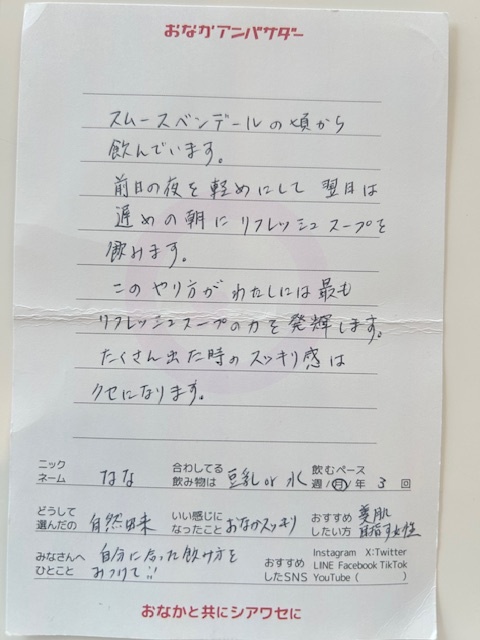 おなかアンバサダー
スムースベンデールの頃から
飲んでいます。
前日の夜を軽めにして 翌日は
遅めの朝にリフレッシュスープを
飲みます。
このやり方がわたしには最も
リフレッシュスープの力を発揮します。
たくさん出た時のスッキリ感は
クセになります。
ニックネーム なな 合わしてる飲み物は 豆乳 or 水 飲むペース 週/月/年 3 回
どうして選んだの 自然由来 いい感じになったこと おなかスッキリ おすすめしたい方 美肌目指す女性
みなさんへひとこと 自分に合った飲み方をみつけて!! おすすめしたSNS Instagram X:Twitter LINE Facebook TikTok YouTube ( )
おなかと共にシアワセに